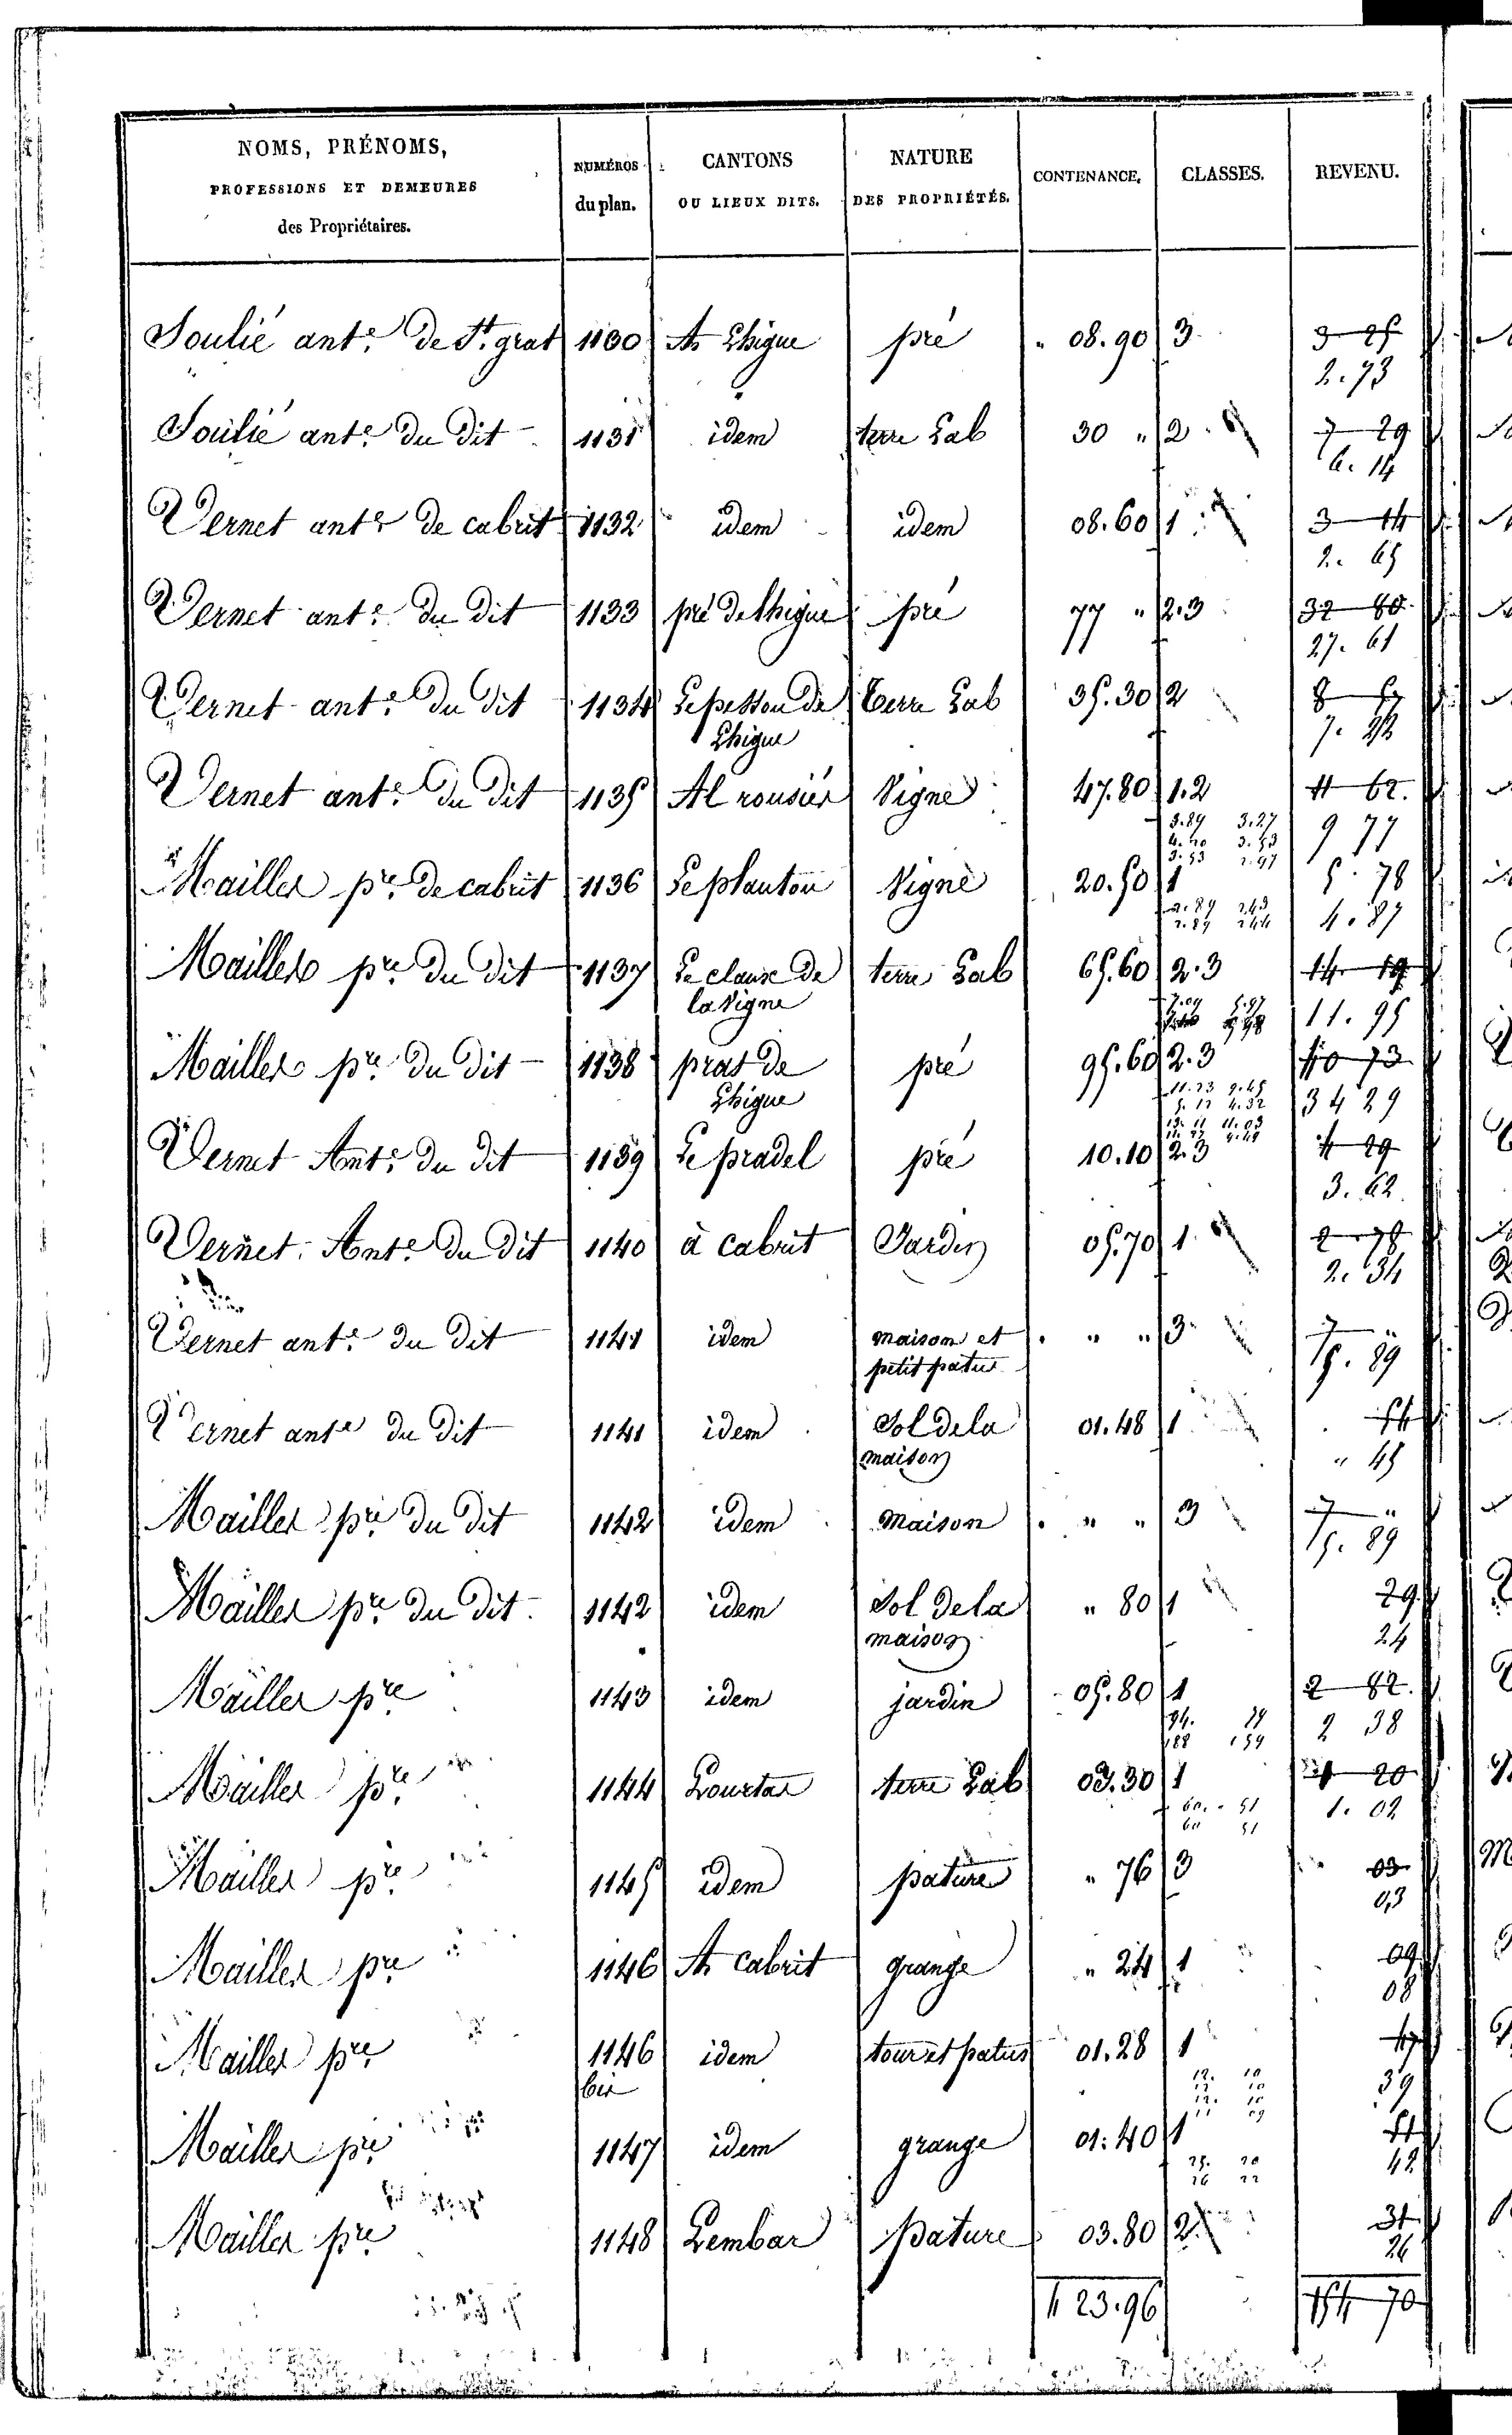 NOMS, PRÉNOMS,
PROFESSIONS ET DEMEURES
des Propriétaires.
NUMÉROS
du plan.
CANTONS
OU LIEUX DITS.
NATURE
DES PROPRIÉTÉS.
CONTENANCE.
CLASSES.
REVENU.
Soulié ant.e de St. grat 1130 A Lhigue pré " 08.90 3 3 25
2.73
Soulié ant.e du dit 1131 idem terre Lab 30 " 2 7 29
6.14
Vernet ant.e de cabrit 1132 idem idem 08.60 1 3 14
2.65
Vernet ant.e du dit 1133 pré de Lhigue pré 77 " 2.3 32 80
27.61
Vernet ant.e du dit 1134 Le petton de terre Lab 35.30 2 8 57
Lhigue 7.22
Vernet ant.e du dit 1135 Al rousiér Vigne 47.80 1.2 11 62
3.89 3.27
4.20 3.53
3.53 2.97
9 77
Mailler p.re de cabrit 1136 Le plantou Vigne 20.50 1 5.78
2.89 2.43
2.89 2.44
4.87
Mailler p.re du dit 1137 Le claux de terre Lab 65.60 2.3 14 19
la Vigne 7.09 5.97
11.95
Mailler p.re du dit 1138 prat de pré 95.60 2.3 40 73
Lhigue 11.23 9.45
5.13 4.32
13.11 11.03
11.23 9.49
34 29
Vernet Ant.e du dit 1139 Le pradel pré 10.10 2.3 4 29
3.62
Vernet Ant.e du dit 1140 à cabrit Jardin 05.70 1 2 78
2.34
Vernet ant.e du dit 1141 idem maison et " " 3 7 "
petit patus 5.89
Vernet ant.e du dit 1141 idem Sol de la 01.48 1 54
maison " 45
Mailler p.re du dit 1142 idem maison " " 3 7 "
5.89
Mailler p.re du dit 1142 idem Sol de la " 80 1 29
maison 24
Mailler p.re 1143 idem jardin 05.80 1 2 82
94. 79
188 159
2 38
Mailler p.re 1144 Lourtas terre Lab 03.30 1 1 20
60. 51
60 51
1.02
Mailler p.re 1145 idem pature " 76 3 03
03
Mailler p.re 1146 A cabrit grange " 24 1 09
08
Mailler p.re 1146 idem tour et patus 01.28 1 47
bis 12. 10
12 10
12. 10
11 09
39
Mailler p.re 1147 idem grange 01.40 1 51
25. 20
26 22
42
Mailler p.re 1148 Lembar pature 03.80 2 31
26
4 23.96 154 70